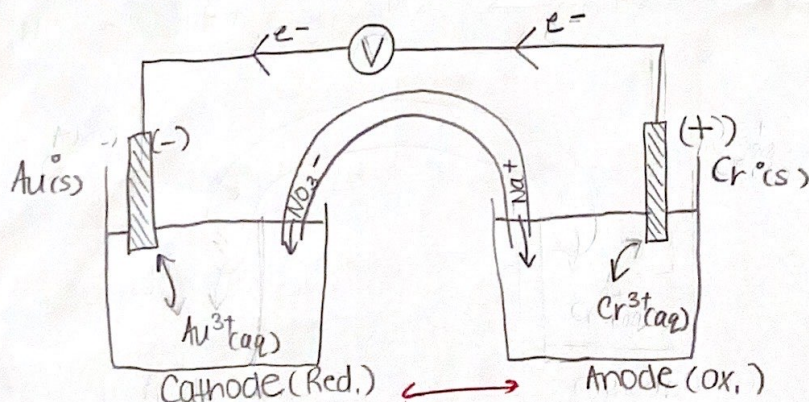 e-
e-
V
(-)
(+)
Au°(s)
Cr°(s)
NO3-
Na+
Au3+(aq)
Cr3+(aq)
Cathode (Red.)
Anode (Ox.)